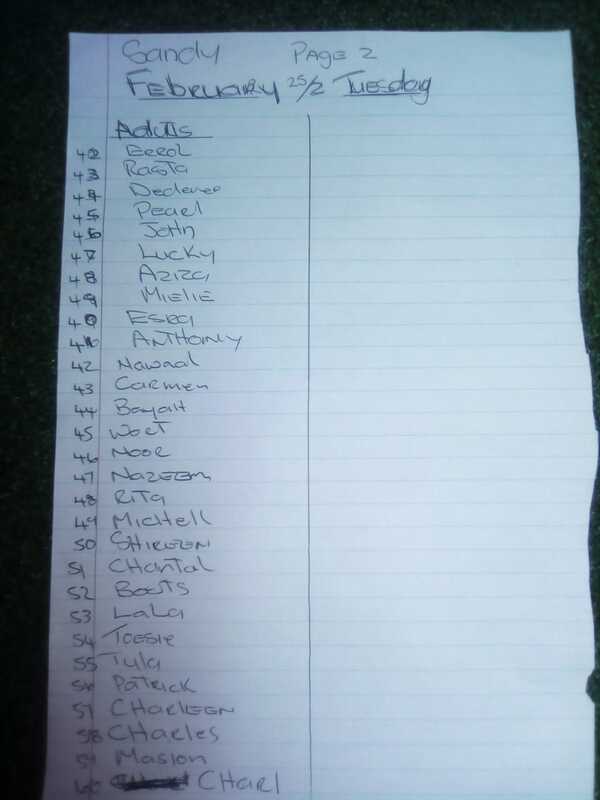 Sandy Page 2
February 25/2 Tuesday
Adults
Errol
Rasta
Declene
Pearl
John
Lucky
Aziza
Mielie
Esra
Anthony
42 Nawaal
43 Carmen
44 Bayah
45 Woet
46 Noor
47 Nazeem
48 Rita
49 Michell
50 Shireen
51 Chantal
52 Boots
53 Lala
54 Toesie
55 Tula
56 Patrick
57 Charleen
58 Charles
59 Maslon
60 Charl